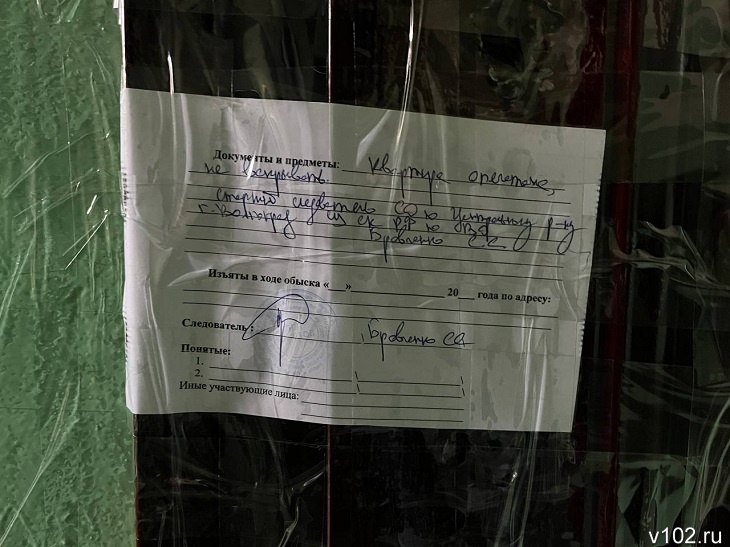 Документы и предметы: Квартира опечатана,
не вскрывать.
Старший следователь СО по Центральному р-ну
г. Волгоград СУ СК РФ по ВО
Бровленко С.С.
Изъяты в ходе обыска «__»__________ 20__ года по адресу:
Следователь: Бровленко СА
Понятые:
1.
2.
Иные участвующие лица:
v102.ru